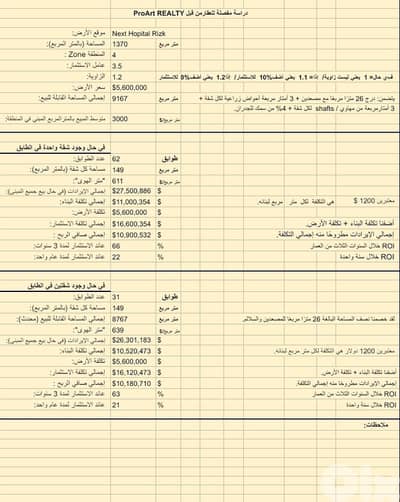 دراسة مفصلة للعقار من قبل ProArt REALTY
موقع الأرض: Next Hopital Rizk
المساحة (بالمتر المربع): 1370 متر مربع
المنطقة Zone : 4
عامل الاستثمار: 3.5
الزاوية: 1.2 في حال= 1 يعني ليست زاوية/ إذا= 1.1 يعني اضف 10% للاستثمار/ إذا 1.2 يعني اضف 9% للاستثمار
سعر الأرض: $5,600,000
إجمالي المساحة القابلة للبيع: 9167 متر مربع يتضمن: درج 26 مترًا مربعًا مع مصعدين + 3 أمتار مربعة أحواض زراعية لكل شقة + 3 أمتار مربعة من مهاوي / shafts لكل شقة + 4% من سمك للجدران.
متوسط المبيع بالمتر المربع المبني في المنطقة: 3000 متر مربع/$
في حال وجود شقة واحدة في الطابق
عدد الطوابق: 62 طوابق
مساحة كل شقة (بالمتر المربع): 149 متر مربع
"متر الهوى": 611 متر مربع/$
إجمالي الإيرادات (في حال بيع جميع المبنى): $27,500,886 $
إجمالي تكلفة البناء: $11,000,354 $ معتبرين 1200 $ هي التكلفة لكل متر مربع لبنائه.
تكلفة الأرض: $5,600,000 $
إجمالي تكلفة الاستثمار: $16,600,354 $ أضفنا تكلفة البناء + تكلفة الأرض.
إجمالي صافي الربح : $10,900,532 $ إجمالي الإيرادات مطروحًا منه إجمالي التكلفة.
عائد الاستثمار لمدة 3 سنوات: 66 % ROI خلال السنوات الثلاث من العمار
عائد الاستثمار لمدة عام واحد: 22 % ROI خلال سنة واحدة
في حال وجود شقتين في الطابق
عدد الطوابق: 31 طوابق
مساحة كل شقة (بالمتر المربع): 149 متر مربع
إجمالي المساحة القابلة للبيع (محدث): 8767 متر مربع لقد خصمنا نصف المساحة البالغة 26 مترًا مربعًا للمصعدين والسلالم.
"متر الهوى": 639 متر مربع/$
إجمالي الإيرادات (في حال بيع جميع المبنى): $26,301,183 $
إجمالي تكلفة البناء: $10,520,473 $ معتبرين 1200 دولار هي التكلفة لكل متر مربع لبنائه.
تكلفة الأرض: $5,600,000 $
إجمالي تكلفة الاستثمار: $16,120,473 $ أضفنا تكلفة البناء + تكلفة الأرض.
إجمالي صافي الربح : $10,180,710 $ إجمالي الإيرادات مطروحًا منه إجمالي التكلفة.
عائد الاستثمار لمدة 3 سنوات: 63 % ROI خلال السنوات الثلاث من العمار
عائد الاستثمار لمدة عام واحد: 21 % ROI خلال سنة واحدة
ملاحظات: